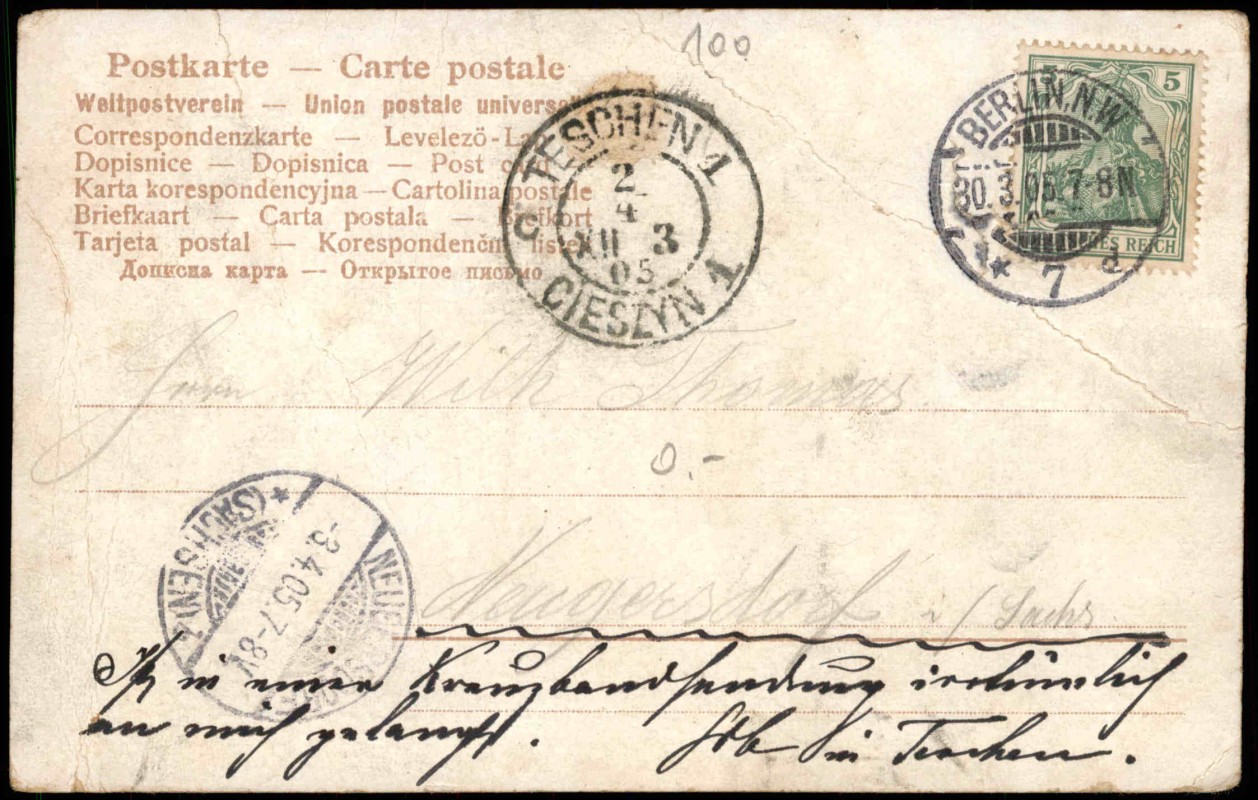 100
Postkarte — Carte postale
Weltpostverein — Union postale univers
Correspondenzkarte — Levelező-La
Dopisnice — Dopisnica — Post c
Karta korespondencyjna — Cartolina postale
Briefkaart — Carta postala — kort
Tarjeta postal — Korespondenčn liste
Дописна карта — Открытое письмо
TESCHEN 1
2
4
XII 3
05
CIESZYN 1
c
5
BERLIN, N.W.
30. 05. 7-8N.
7 d
ES REICH
Herrn Wilh Thomas
0.-
Neugersdorf i/ Sachs.
(SACHSEN)
-3.4.05.7-8V
Ist in einer Kreuzbandsendung irrtümlich
an mich gelangt. in Teschen.